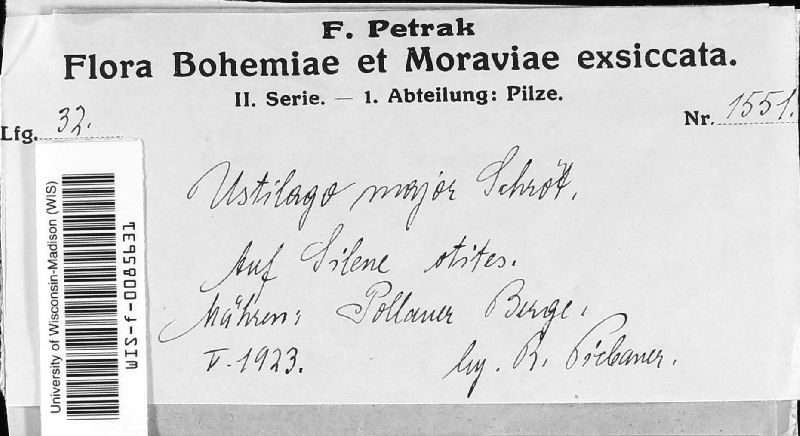 F. Petrak
Flora Bohemiae et Moraviae exsiccata.
II. Serie. — 1. Abteilung: Pilze.
Lfg. 32.
Nr. 1551.
Ustilago major Schröt.
Auf Silene otites.
Mähren: Pollauer Berge.
V. 1923. leg. R. Picbauer.
University of Wisconsin-Madison (WIS)
WIS-f-0085631